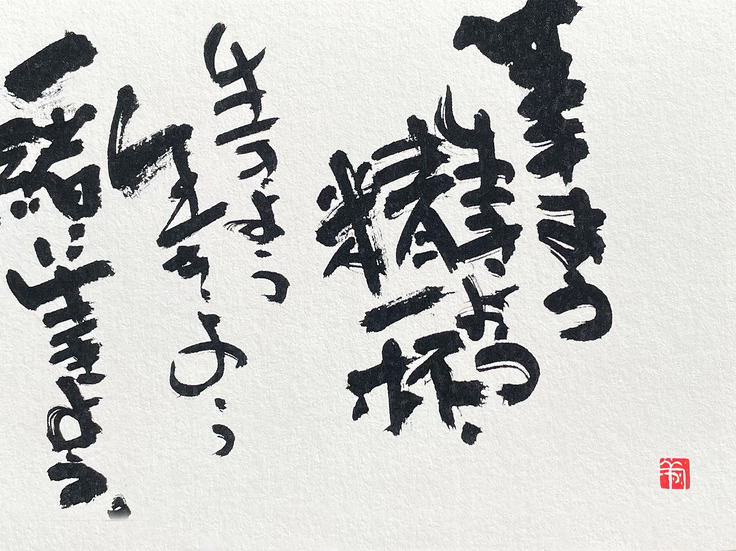 生きよう
生きよう
精一杯、
生きよう
生きよう
一緒に生きよう。